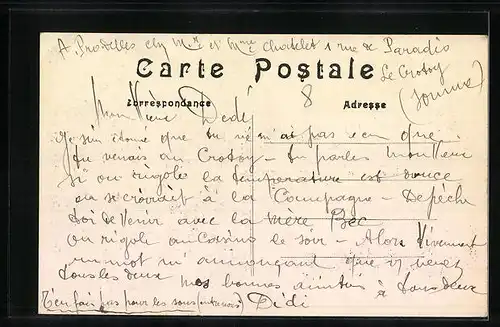 A, Prodelles chez Mr et Mme Chatelet 1 rue de Paradis
Carte Postale
Le Crotoy
(Somme)
Correspondance
8
Adresse
Mon Vieux Dédé
que tu n'ai pas reçu que
tu venais au Crotoy - tu parles mon Vieux
si on rigole la température est douce
on se croirait à la Campagne - Dépêche
toi de Venir avec la Mère Bec
on rigole au Casino le soir - Alors Vivement
un mot m'annonçant que vs venez
tous les deux
mes bonnes amitiés à tous deux
T'en fais pas pour les sous
Dédi